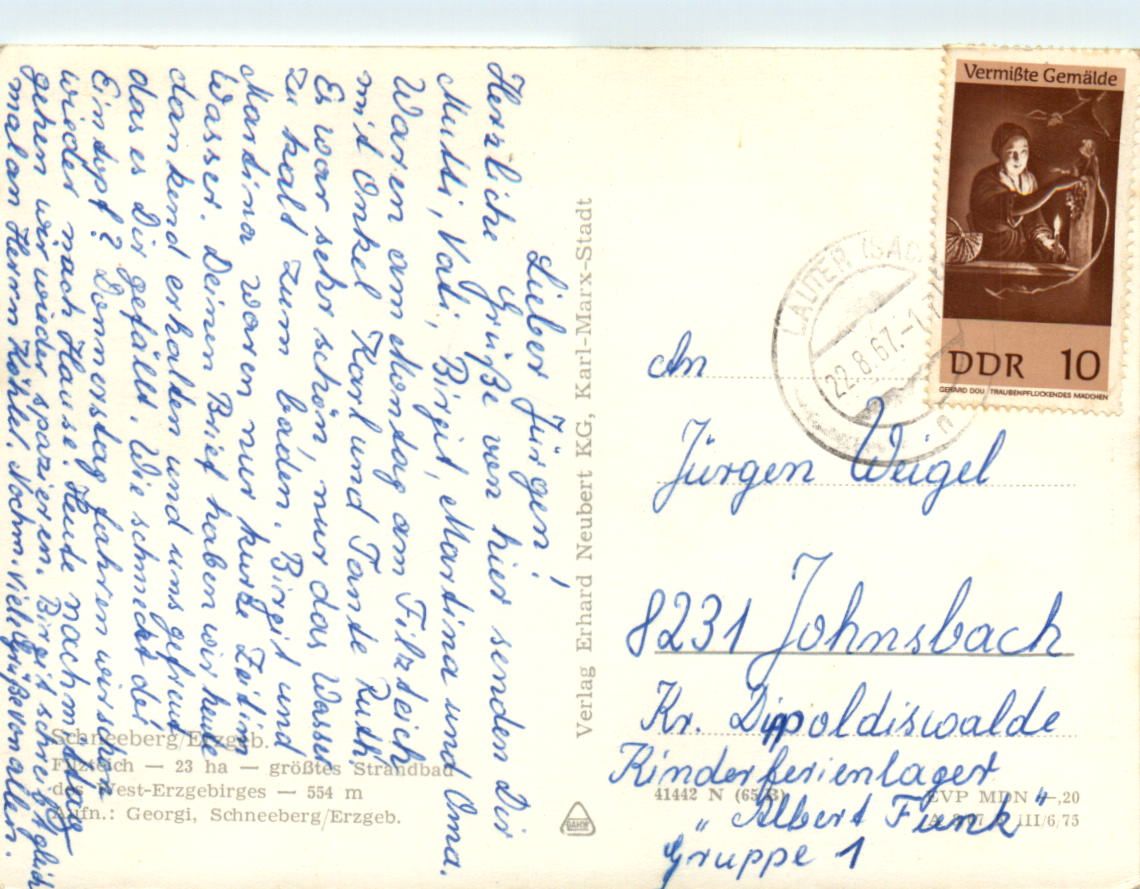 Lieber Jürgen!
Herzliche Grüße von hier senden Dir
Mutti, Vati, Birgit, Martina und Oma.
Waren am Montag am Filzteich
mit Onkel Karl und Tante Ruth
Es war sehr schön, nur das Wasser
zu kalt zum baden. Birgit und
Martina waren nur kurze Zeit im
Wasser. Deinen Brief haben wir heut
dankend erhalten und uns gefreut
das es Dir gefällt. Wie schmeckt der
Eintopf? Donnerstag fahren wir schon
wieder nach Hause. Heute nachmittag
gehen wir wieder spazieren. Birgit schreibt gleich
mal an Herrn Köhler. Nochm. viele Grüße von allen.
Schneeberg/Erzgeb.
Filzteich — 23 ha — größtes Strandbad
des West-Erzgebirges — 554 m
Aufn.: Georgi, Schneeberg/Erzgeb.
Verlag Erhard Neubert KG, Karl-Marx-Stadt
Vermißte Gemälde
DDR 10
GERARD DOU · TRAUBENPFLÜCKENDES MÄDCHEN
LAUTER (SA
22.8.67.-1
n
An
Jürgen Weigel
8231 Johnsbach
Kr. Dippoldiswalde
Kinderferienlager
"Albert Funk"
Gruppe 1
41442 N (65
EVP MDN —,20
III/6,75